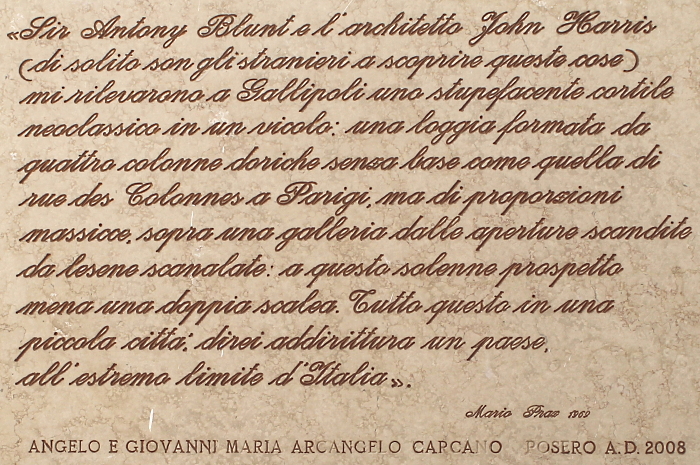 «Sir Antony Blunt e l'architetto John Harris
(di solito son gli stranieri a scoprire queste cose)
mi rilevarono a Gallipoli uno stupefacente cortile
neoclassico in un vicolo: una loggia formata da
quattro colonne doriche senza base come quella di
rue des Colonnes a Parigi, ma di proporzioni
massicce, sopra una galleria dalle aperture scandite
da lesene scanalate: a questo solenne prospetto
mena una doppia scalea. Tutto questo in una
piccola città; direi addirittura un paese,
all'estremo limite d'Italia».
Mario Praz
ANGELO E GIOVANNI MARIA ARCANGELO CARCANO POSERO A.D. 2008